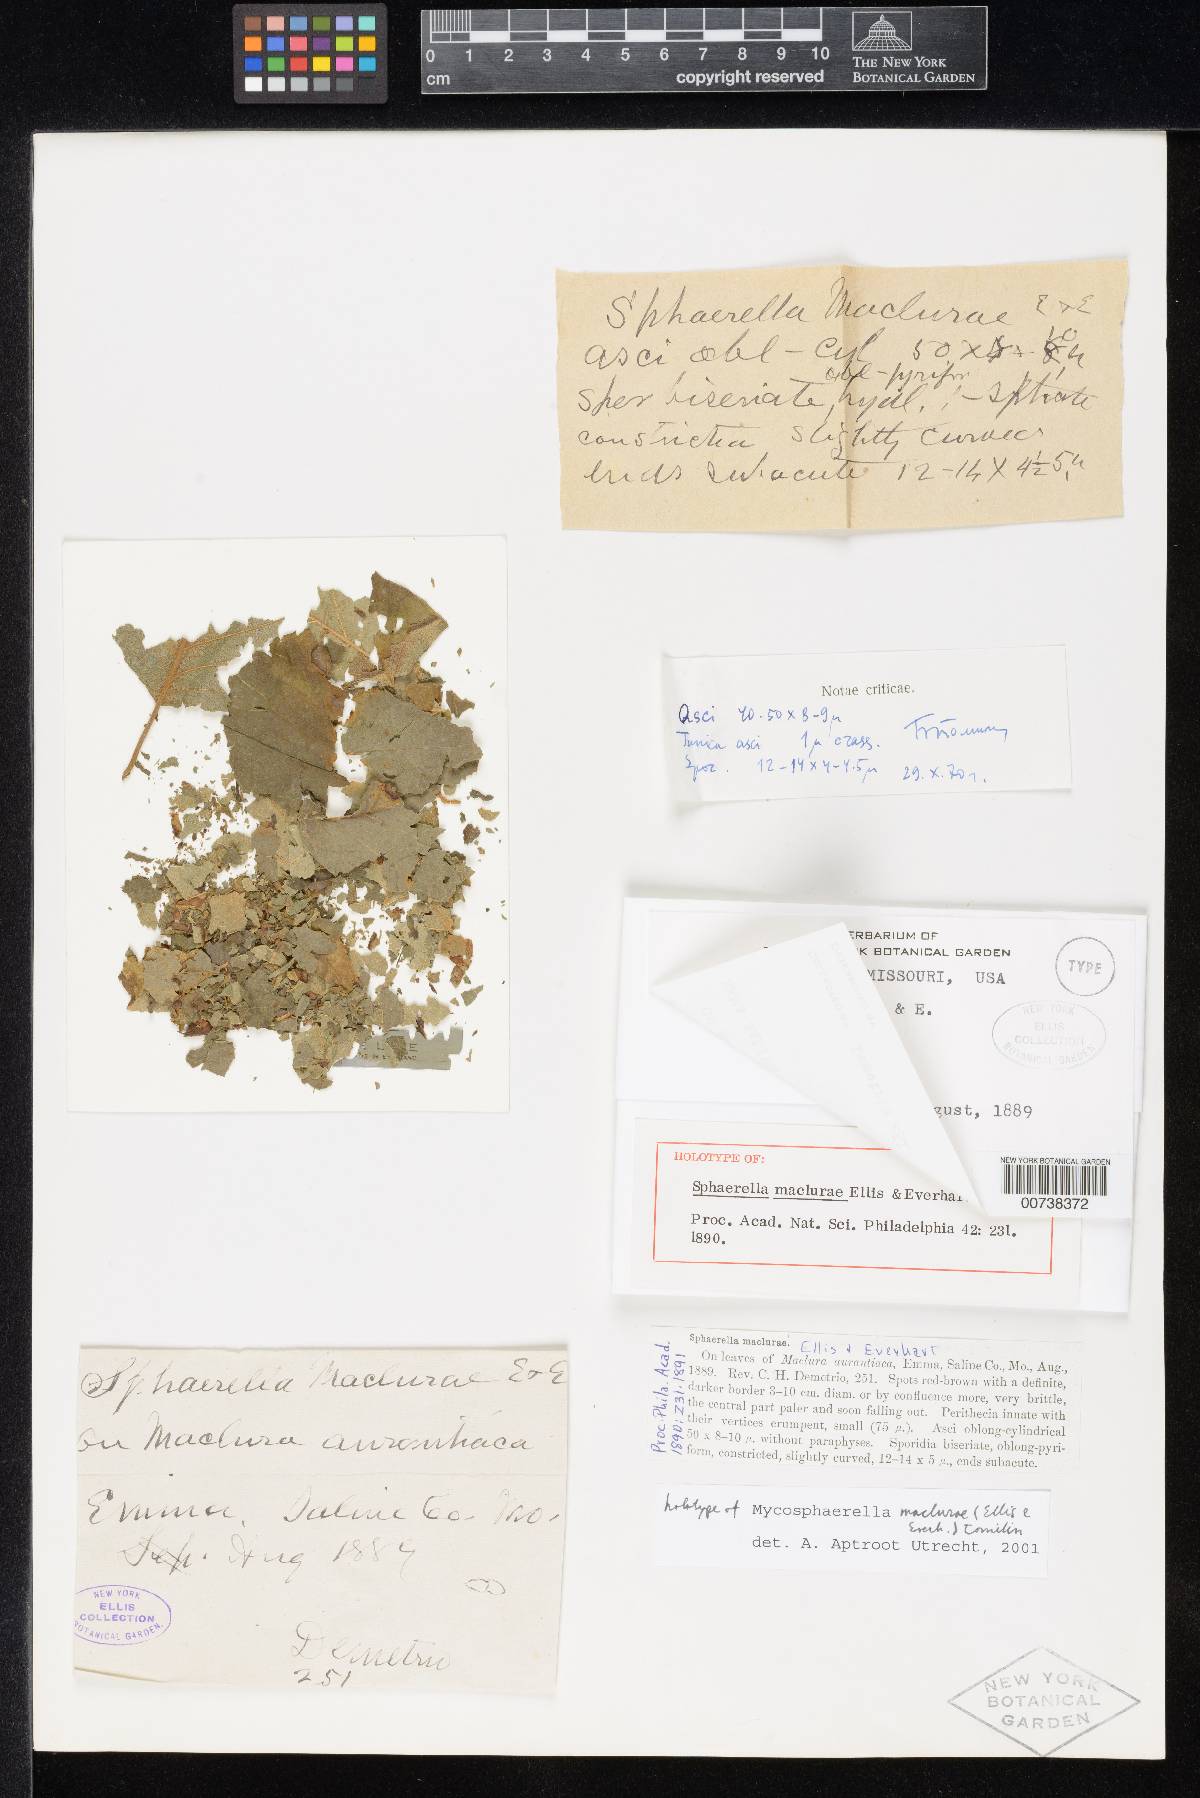 0 1 2 3 4 5 6 7 8 9 10
cm
copyright reserved
THE NEW YORK
BOTANICAL GARDEN
Sphaerella Maclurae E & E
asci obl-cyl 50 x 8-10 µ
obl-pyrifor
Spor biseriate, hyal,
constricted slightly curved
ends subacute 12-14 X 4½ 5 µ
Notae criticae.
Asci 40-50 x 8-9µ
Tunica asci 1µ crass.
Spor. 12-14 x 4-4.5µ 29.X.70
HERBARIUM OF
BOTANICAL GARDEN
MISSOURI, USA
TYPE
& E.
NEW YORK
ELLIS
COLLECTION
BOTANICAL GARDEN
gust, 1889
NEW YORK BOTANICAL GARDEN
00738372
HOLOTYPE OF:
Sphaerella maclurae Ellis & Everha
Proc. Acad. Nat. Sci. Philadelphia 42: 231.
1890.
Proc. Phila. Acad.
1890: 231. 1891
Sphaerella maclurae. Ellis & Everhart
On leaves of Maclura aurantiaca, Emma, Saline Co., Mo., Aug.,
1889. Rev. C. H. Demetrio, 251. Spots red-brown with a definite,
darker border 3-10 cm. diam. or by confluence more, very brittle,
the central part paler and soon falling out. Perithecia innate with
their vertices erumpent, small (75 µ.). Asci oblong-cylindrical
50 x 8-10 µ. without paraphyses. Sporidia biseriate, oblong-pyri-
form, constricted, slightly curved, 12-14 x 5 µ., ends subacute.
holotype of Mycosphaerella maclurae (Ellis &
Everh.) Tomilin
det. A. Aptroot Utrecht, 2001
Sphaerella Maclurae E & E
on Maclura aurantiaca
Emma, Saline Co. Mo.
Sep. Aug 1889
NEW YORK
ELLIS
COLLECTION
BOTANICAL GARDEN.
Demetrio
251
NEW YORK
BOTANICAL
GARDEN